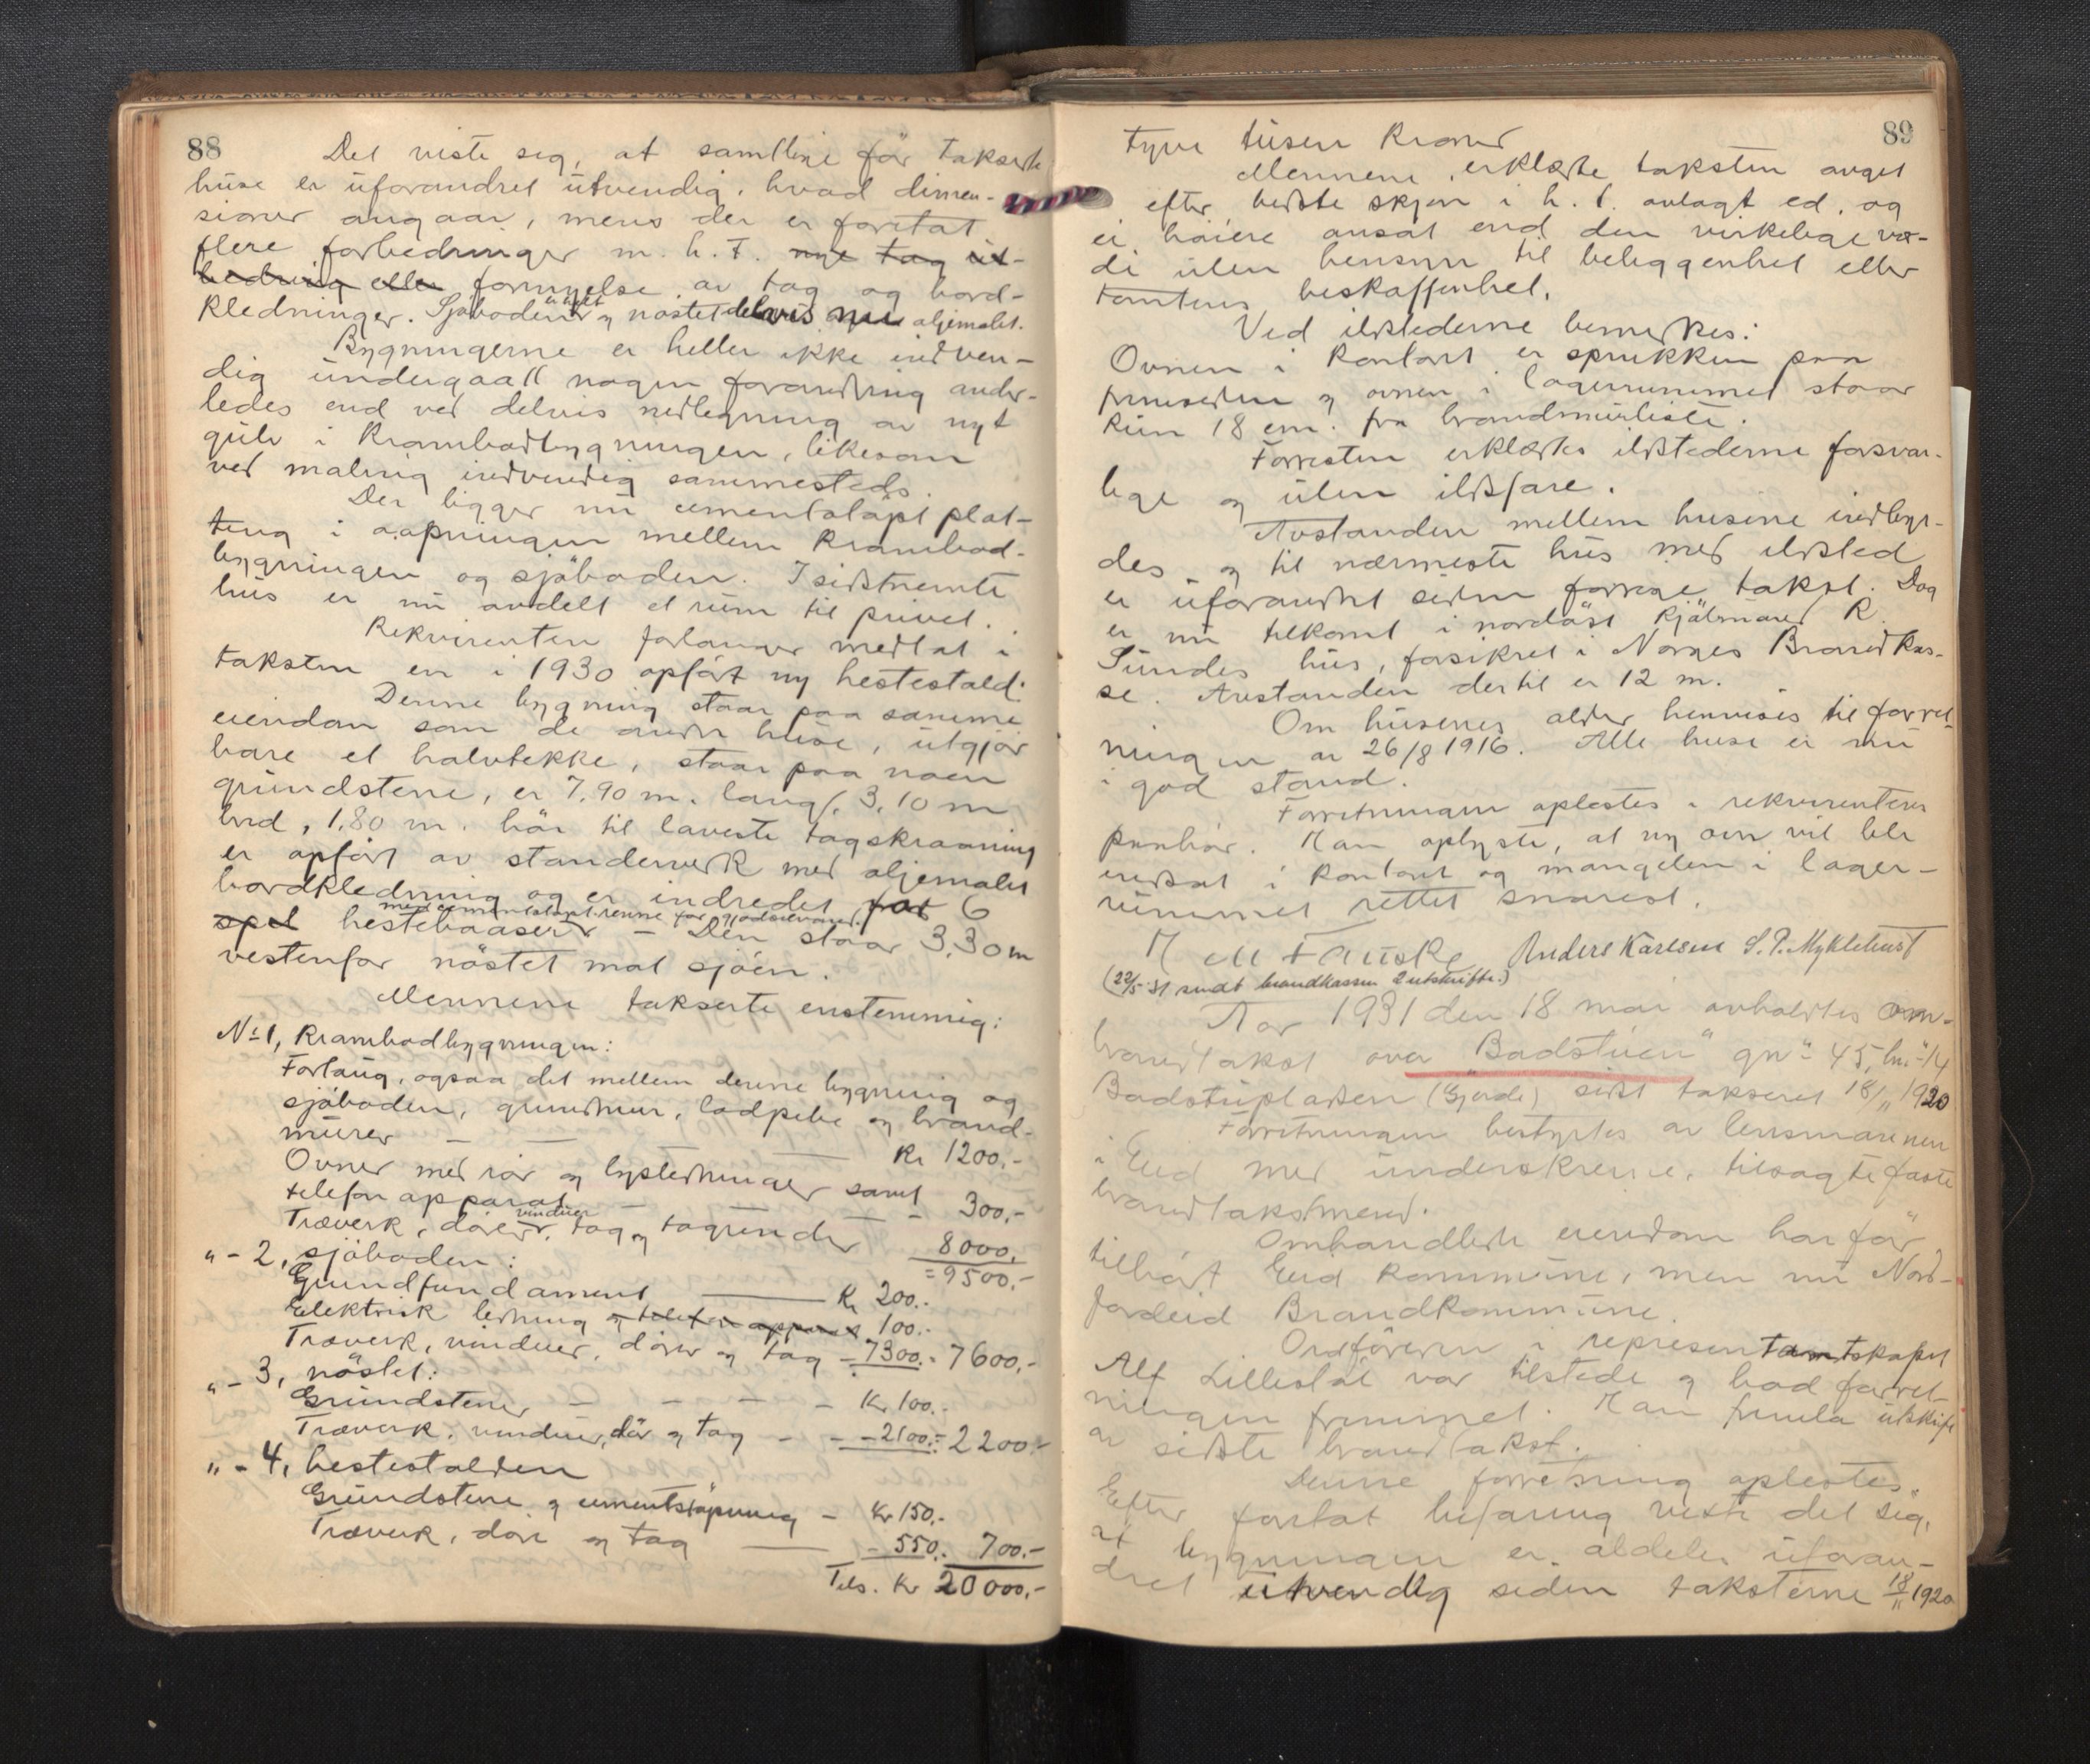 88
Det viste seg, at samtlige før takserte
huse er uforandret utvendig, hvad dimen-
sioner angaar, mens der er foretat
flere forbedringer m. h. t. nye tag ut-
bedring eller fornyelse av tag og bord-
kledninger. Sjøboden er og nøstet delvis nu oljemalet.
Bygningerne er heller ikke indven-
dig undergaatt nogen forandring ander-
ledes end ved delvis nedlegning av nyt
gulv i Krambodbygningen, likesom
ved maling indvendig sammesteds.
Der ligger nu cementstøpt plat-
ting i aapningen mellem Krambod-
bygningen og sjøboden. I sidstnemte
hus er nu avdelt et rum til privet.
Rekvirenten forlanger medtat i
taksten en i 1930 opført ny hestestald.
Denne bygning staar paa samme
eiendom som de andre huse, utgjør
bare et halvtekke, staar paa noen
grundstene, er 7,90 m. lang, 3,10 m
bred, 1,80 m. høi til laveste tagskraaning
er opført av standerverk med oljemalet
bordkledning og er indredet for 6
med cementstøpt renne for gjødselvand
spel hestebaaser - Den staar 3,30 m
vestenfor nøstet mot sjøen.
Mennene takserte enstemmig:
No 1, Krambodbygningen:
Fortaug, ogsaa det mellem denne bygning og
sjøboden, grundmur, lodpipe og brand-
murer — — — Kr 1200,-
Ovner med rør og lysledninger samt
telefonapparat — — - 300,-
vinduer
Træverk, dører, tag og tagrender 8000,
= 9500,-
" - 2, sjøboden:
Grundfundament — Kr 200,-
Elektrisk ledning og telefonapparat 100,-
Træverk, vinduer, dører og tag - 7300,- 7600,-
" - 3, nøstet:
Grundstener - - - - Kr 100,-
Træverk, vinduer, dør og tag - - - 2100,- = 2200,-
" - 4, hestestalden
Grundstene og cementstøpning - Kr 150,-
Træverk, dør og tag — - 550,- 700,-
Tils. Kr 20000,-
89
Tyve tusen Kroner
Mennene erklærte taksten avget
efter bedste skjøn i h. t. avlagt ed, og
ei høiere ansat end den virkelige vær-
di uten hensyn til beliggenhet eller
tomtens beskaffenhet.
Ved ildstederne bemerkes:
Ovnen i Kontoret er sprukken paa
fremsiden og ovnen i lagerrummet staar
kun 18 cm. fra brandmurliste.
Forresten erklærtes ildstederne forsvar-
lige og uten ildsfare.
Avstanden mellem husene indbyr-
des og til nærmeste hus med ildsted
er uforandret siden forrige takst. Dog
er nu tilkomt i nordøst kjøbmand R.
Sundes hus, forsikret i Norges Brandkas-
se. Avstanden dertil er 12 m.
Om husenes alder henvises til forret-
ningen av 26/8 1916. Alle huse er nu
i god stand.
Forretningen oplæstes i rekvirentens
paahør. Han oplyste, at ny ovn vil bli
indsat i Kontoret og mangelen i lager-
rummet rettet snarest.
H M Fauske Anders Karlsen S. P. Myklebust
(22/5-31 sendt brandkassen 2 utskrifter.)
Aar 1931 den 18 mai avholdtes om-
brandtakst over "Badstuen" gn. 45, bn. 14
Badstuplassen (Gjerde) sidst taksert 18/11 1920
Forretningen bestyrtes av lensmannen
i Eid med underskrevne, tilsagte faste
brandtakstmend.
Omhandlede eiendom har før
tilhørt Eid kommune, men nu Nord-
fjordeid Brandkommune.
Ordføreren i representantskapet
Alf Lillestøl var tilstede og bad forret-
ningen fremmet. Han fremla utskrift
av sidste brandtakst.
Denne forretning oplæstes.
Efter foretat befaring viste det seg,
at bygningen er aldeles uforan-
dret utvendig siden taksterne 18/11 1920